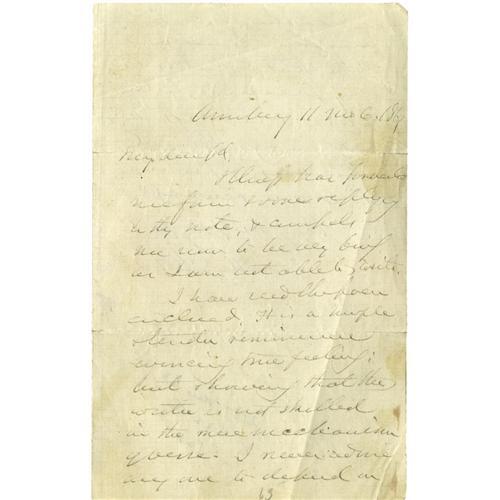 Amesbury 11 mo 6. 186
My dear Fd,
Illness has prevented
me from sooner replying
to thy note, & compels
me now to be very brief
as I am not able to write.
I have read the poem
enclosed. It is a simple
& tender reminiscence
evincing true feeling;
but showing that the
writer is not skilled
in the mere mechanism
of verse. I never advise
any one to depend on